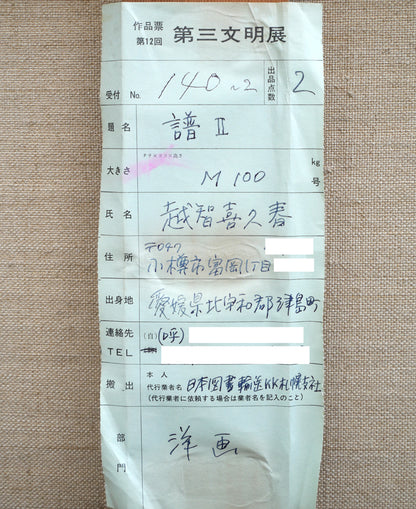 作品票
第12回 第三文明展
受付 No. 140~2 出品点数 2
題名 譜 II
タテ×ヨコ×高さ
大きさ M 100 kg 号
氏名 越智喜久春
〒047
住所 小樽市富岡1丁目
出身地 愛媛県北宇和郡津島町
連絡先 (自) (呼)
TEL
本人
搬出 代行業者名 日本図書輸送KK札幌支社
(代行業者に依頼する場合は業者名を記入のこと)
部門 洋画